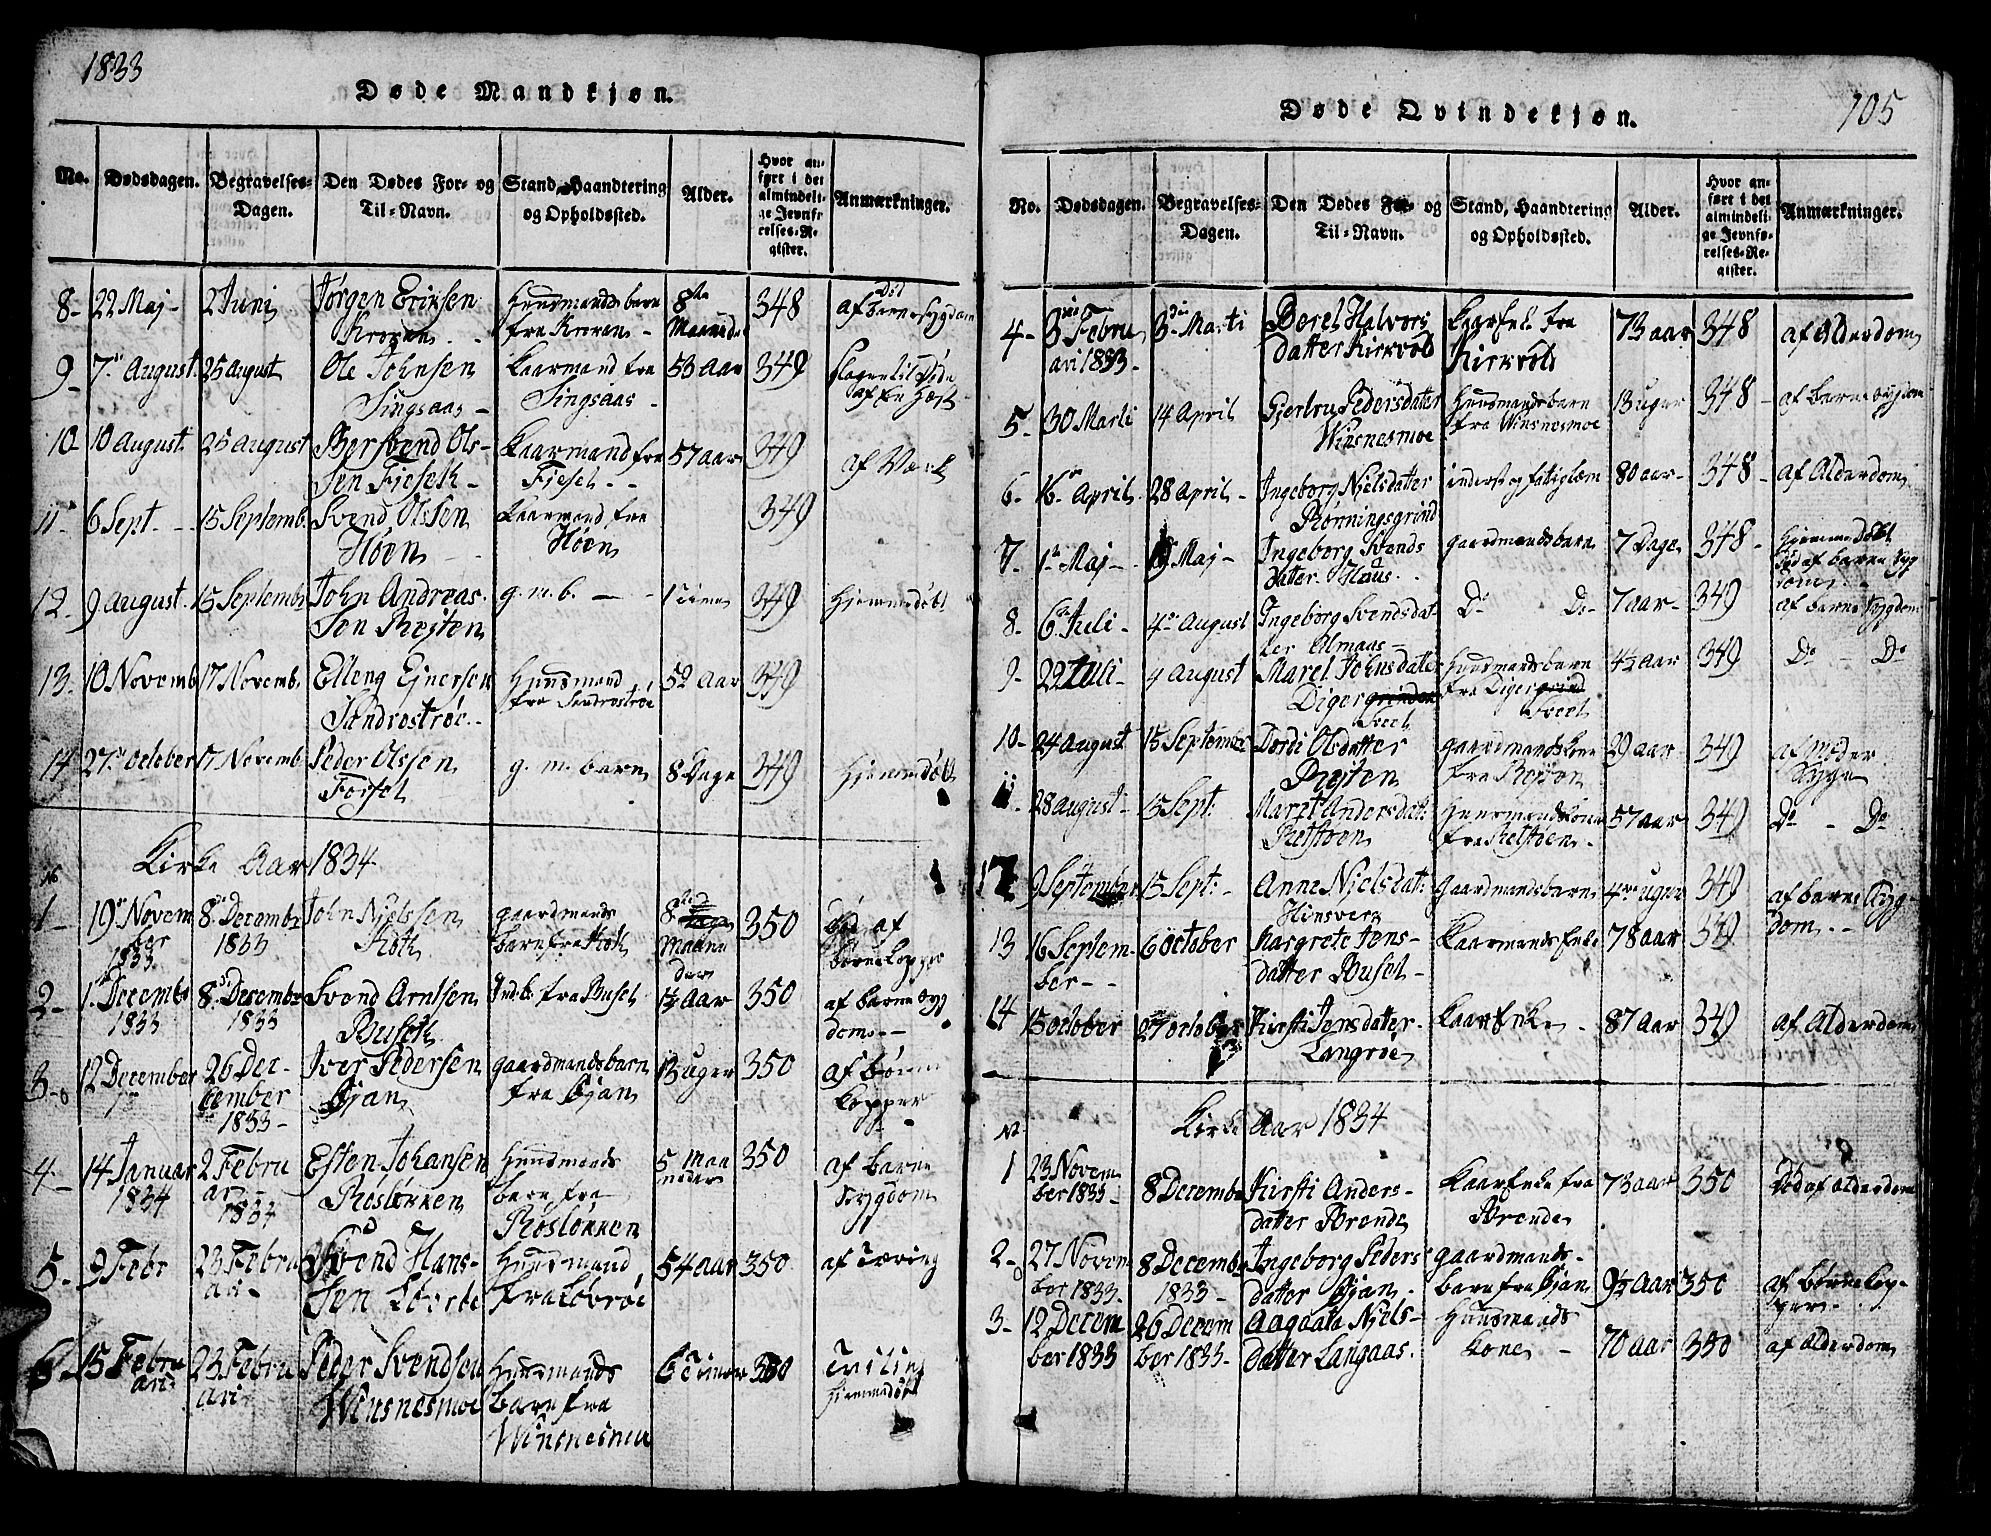 1833
Døde Mandkjøn.
No. Dødsdagen. Begravelses-Dagen. Den Dødes For- og Til-Navn. Stand, Haandtering og Opholdssted. Alder. Hvor anført i det almindelige Jevnførelses-Register. Anmærkninger.
8- 22 Maj- 2 Juni Jørgen Eriksen Kroran- Huusmands barn fra Kroran- 8te Maaneder 348 Død af barne sygdom
9- 7de August 25 August Ole Johnsen Singsaas- Kaarmand fra Singsaas- 53 Aar 349 Slagen til Døde af En Hest
10- 10 August 25 August Bersvend Olsen Fieset- Kaarmand fra Fieset- 57 Aar 349 af Værk
11- 6 Sept- 15 Septemb. Svend Olssen Høen Kaarmand fra Høen 349
12- 9 August. 15 Septembr John Andreassen Rejten g.m.b. 349 Hjemmedøbt
13- 10 Novemb 17 Novemb. Elleng Ejnersen Sandrostrøe- Huusmand fra Sandrostrøe 52 Aar 349
14 27de October 17 Novemb Peder Olssen Forset g. m. barn 8 Dage 349 Hjemmedøbt
Kirke Aar 1834
No
1- 19de Novem ber 1833 8de Decembr 1833 John Nielssen gaardmands barn fra 8te Maaneder 350 Død af børnekopper
2- 1 Decembr 1833 8de Decembr 1833 Svend Arntsen Buseth Ind.b. fra Buset 1½ Aar 350 af barne syg dom-
3- 12 December 26 December 1833- Iver Pedersen Bjan gaardmandsbarn fra Bjan 13 Uger 350 af børne kopper
4- 14 Januar 1834 2 Febru ar 1834 Esten Johansen Røsløkken Huusmands barn fra Røsløkken 5 Maa neder 350 af barne sygdom
5- 9 Febr 23 Febru ari- Svend Hans- sen Huusmand fra 54 Aar 350 af Tæring
6- 15 Febru ari 23 Febru ari Peder Svendsen Winsnesmoe Huusmands barn fra Winsnesmoe 6 Timer 350 Tviling Hjemmedøbt
105
Døde Qvindekjøn.
No. Dødsdagen. Begravelses-Dagen. Den Dødes For- og Til-Navn. Stand, Haandtering og Opholdssted. Alder. Hvor anført i det almindelige Jevnførelses-Register. Anmærkninger.
4- 3 Febru ari 1833- 3die Marti Dorel Halvors datter Kirkvold Kaarfol. fra Kirkvold 73 aar 348 af Alderdom
5- 30 Marti 14 April Gjertru Pedersdater Winsnesmoe Huusmandsbarn fra Winsnesmoe 13 uger 348- af barne sygdom
6- 16de April 28 April- Ingeborg Nielsdatter Rønningsgrind inderst og fatiglem 80 aar- 348- af Alderdom
7- 1te Maj- Maj- Ingeborg Svends datter Haus gaardmandsbarn 7 Dage 348- Hjemmedøbt død af barne syg dom
8- 6te Juli- 4de August Ingeborg Svendsdat ter Almaas- Do Do 7 aar- 349 af barne sygdom
9- 22 Juli- 4 August Maret Johnsdater Digergrinden Sveet Huusmandsbarn fra Digergrind Sveet 4½ Aar 349 Do - Do
10- 24 August 15 September Dordi Olsdatter Rejten gaardmandskone fra Rejten 29 aar- 349
11- 28 August- 15 Sept: Maret Andersdat: Retstøen Huusmandskone fra Retstøen- 57 aar 349 Do - Do
12 9 September 15 Sept:- Anne Nielsdat: Hinsverk gaardmandsbarn 4re uger 349 af barne syg dom-
13 16 Septem- ber- 6 October Margrete Jens- datter Buset- Kaarmands Enke 78 aar 349
14 15 October 27 October Kirsti Jensdatter- Langrøe Kaar Enke- 87 Aar 349 af Alderdom
Kirke Aar 1834
No
1 23 Novem ber 1833- 8 Decembr Kirsti Anders- datter Brende Kaar Enke fra Brende 73 aar 350 Død af Alderdom
2- 27 Novem ber 1833- 8 Decemb 1833- Ingeborg Peders datter Bjan- gaardmands- barn fra Bjan 9½ Aar 350 af børnekop- per-
3- 12 Decem ber 1833 26 Decem ber 1833- Aagaata Niels- datter Langaas. Huusmands Kone - 70 aar 350 af Alderdom